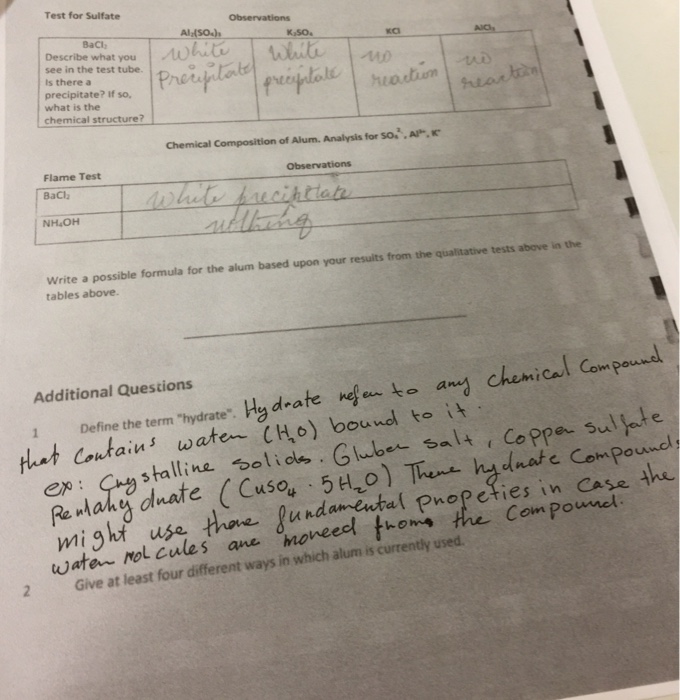 Test for Sulfate Observations
Al₂(SO₄)₃ K₂SO₄ KCl AlCl₃
BaCl₂
Describe what you
see in the test tube.
Is there a
precipitate? If so,
what is the
chemical structure?
white
Precipitate
white
precipitate
no
reaction
no
reaction
Chemical Composition of Alum. Analysis for SO₄²⁻, Al³⁺, K⁺
Flame Test Observations
BaCl₂ white precipitate
NH₄OH nothing
Write a possible formula for the alum based upon your results from the qualitative tests above in the
tables above.
Additional Questions
1 Define the term "hydrate". Hydrate refer to any chemical Compound
that contains water (H₂O) bound to it.
ex: Crystalline solids. Gluber salt, Copper sulfate
Pentahydrate (CuSO₄ · 5H₂O) There hydrate Compounds
might use there fundamental propeties in case the
water molcules are moreed from the Compound.
2 Give at least four different ways in which alum is currently used.